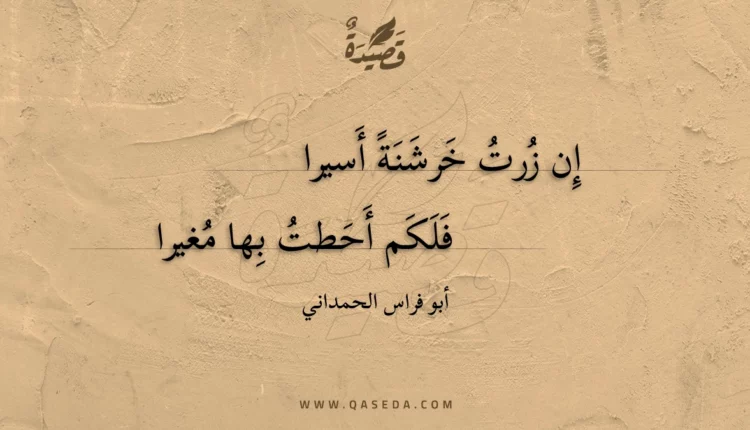 قَصِيْدَةٌ
إِن زُرتُ خَرشَنَةً أَسيرا
فَلَكَم أَحَطتُ بِها مُغيرا
أبو فراس الحمداني
WWW.QASEDA.COM